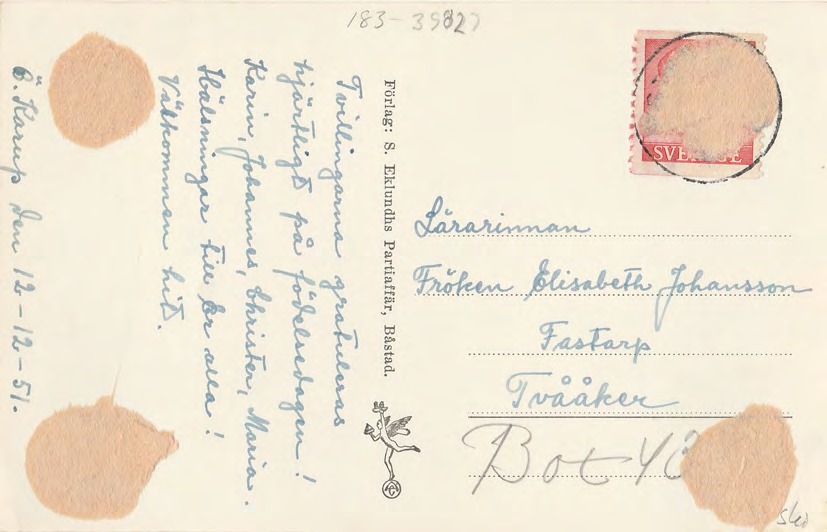 183-39827
Ö. Karup den 12-12-51.
Tvillingarna gratuleras
hjärtligt på födelsedagen!
Karin, Johannes, Christer, Maria.
Hälsningar till Er alla!
Välkommen hit.
Förlag: S. Eklundhs Partiaffär, Båstad.
SVERIGE
Lärarinnan
Fröken Elisabeth Johansson
Fastarp
Tvååker
Bot